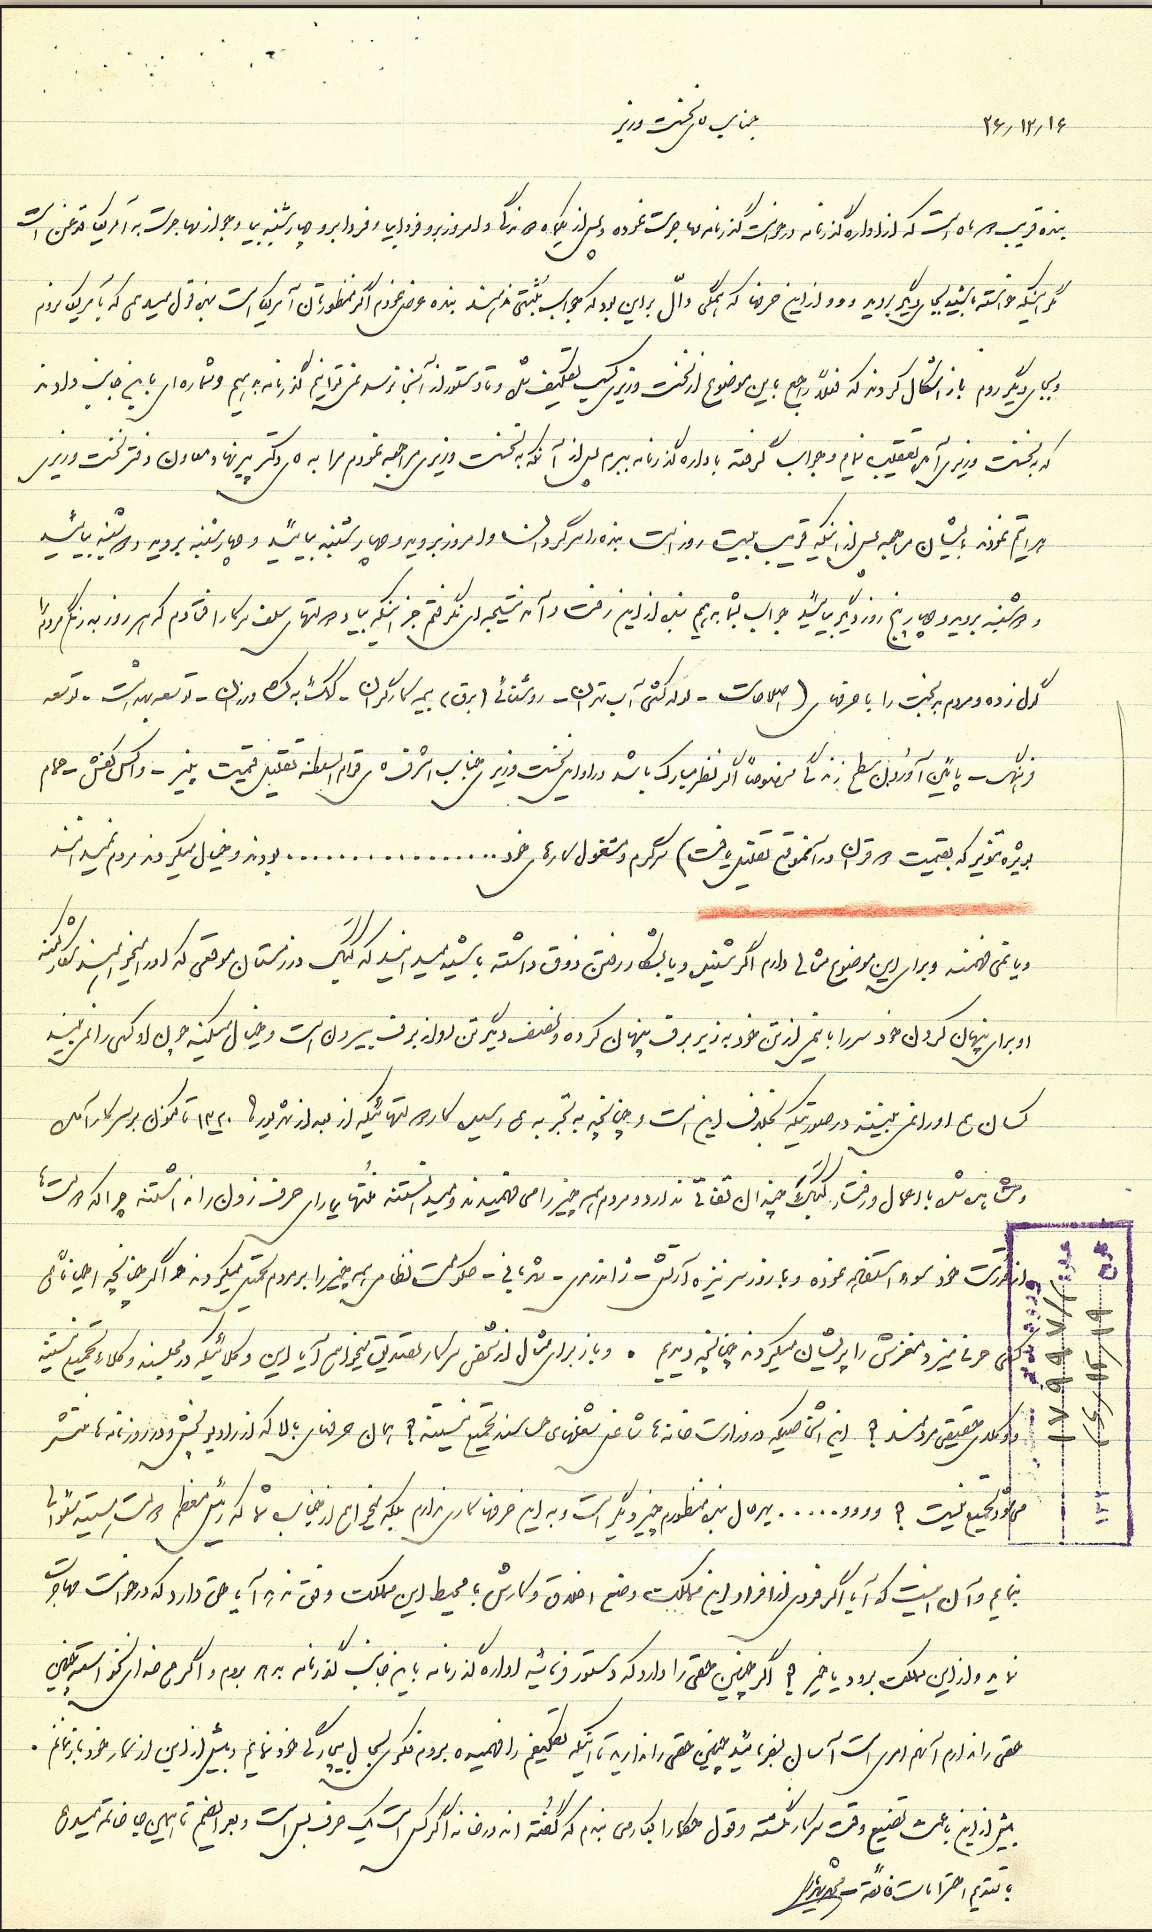 ۲۶/۱۲/۱۶
جناب آقای نخست وزیر
بنده قریب دو ماه است که از اداره گذرنامه درخواست گذرنامه مهاجرت نموده و پس از یکماه دوندگی و امروز برو فردا بیا و فردا برو چهارشنبه بیا و جواز مهاجرت به آمریکا قدغن است
مگر اینکه خواسته باشید بجای دیگر بروید و و و از این حرفها که همگی دال بر این بود که جواب مثبتی ندهند بنده عرض نمودم اگر منظورتان آمریکا است بنده قول میدهم که بآمریکا نروم
و بجای دیگر روم باز اشکال کردند که فعلاً راجع باین موضوع از نخست وزیری کسب تکلیف شده و تا دستور از آنجا نرسد نمی توانیم گذرنامه بدهیم و شماره ای باینجانب دادند
که به نخست وزیری آمده تعقیب نمایم و جواب گرفته باداره گذرنامه ببرم پس از آنکه به نخست وزیری مراجعه نمودم مرا به آقای دکتر معاون دفتر نخست وزیری
هدایتم نمودند بایشان مراجعه پس از اینکه قریب بیست روز است بنده را سرگردان و امروز بروید و چهارشنبه بیائید و چهارشنبه بروید و دوشنبه بیائید
و دوشنبه بروید و چهار پنج روز دیگر بیائید جواب بشما بدهیم بنده از این رفت و آمد نتیجه ای نگرفتم جز اینکه بیاد دولتهای سلف سرکار افتادم که هر روز به رنگی مردم را
گول زده و مردم بدبخت را با حرفهای (اصلاحات - لوله کشی آب تهران - روشنائی (برق) بیمه کارگران - کمک به کشاورزان - توسعه بهداشت - توسعه
فرهنگ - پائین آوردن سطح زندگی مخصوصاً اگر نظر مبارک باشد در اوایل نخست وزیری جناب اشرف آقای قوام السلطنه تقلیل قیمت پنیر - واکس کفش - حمام
بویژه تخم مرغ که بقیمت دو قران در آنموقع تقلیل یافت) سرگرم و مشغول کارهای خود ................ بودند و خیال میکردند مردم نمیدانند
و یا نمی فهمند و برای این موضوع مثالی دارم اگر شنیده و یا بشکار رفتن ذوق داشته باشید میدانید که کبک در زمستان موقعی که او را میخواهند شکار کنند
او برای پنهان کردن خود سر را با نیمی از تن خود به زیر برف پنهان کرده و نصف دیگر تن او از برف بیرون است و خیال میکند چون او کسی را نمی بیند
کسان هم او را نمی بینند در صورتیکه بخلاف این است و چنانچه به تجربه هم رسیده کار دولتهائیکه از بعد از شهریور ۱۳۲۰ تاکنون بر سر کار آمده
و مشاهده شده با اعمال و رفتار کبک چندان تفاوتی ندارد و مردم همه چیز را می فهمیدند و میدانستند منتها یارای حرف زدن را نداشتند چرا که دولت ها
از قدرت خود سوء استفاده نموده و با زور سر نیزه ارتش - ژاندارمری - شهربانی - حکومت نظامی همه چیز را بر مردم تحمیل میکردند و اگر چنانچه احیاناً هم
کسی حرفی میزد مغزش را پریشان میکردند چنانچه دیدیم . و باز برای مثال از شخص سرکار تصدیق میخواهم آیا این وکلائیکه در مجلسند وکلاء تحمیلی نیستند
و وکلای حقیقی مردمند ؟ این اشخاصیکه در وزارت خانه ها شاغل شغلهای حساسند تحمیلی نیستند ؟ همان حرفهای بالا که از رادیو پخش و در روزنامه ها منتشر
می شود تحمیلی نیست ؟ و و و و ...... بهرحال بنده منظورم چیز دیگر است و به این حرفها کاری ندارم بلکه میخواهم از جنابعالی که رئیس معظم دولت هستید سئوالی
بنمایم و آن اینست که آیا اگر فردی از افراد این مملکت وضع اخلاق و کارش با محیط این مملکت وفق ندهد آیا حق دارد که درخواست مهاجرت
نماید و از این مملکت برود یا خیر ؟ اگر چنین حقی را دارد که دستور فرمائید اداره گذرنامه باینجانب گذرنامه بدهد بروم و اگر هم خدای نخواسته چنین
حقی را ندارم آنهم امری است آسان بفرمائید چنین حقی را ندارید تا اینکه تکلیفم را فهمیده بروم فکری بحال بیچارگی خود نمایم و بیش از این از کار خود باز نمانم .
بیش از این باعث تضییع وقت سرکار نگشته و قول حکما را بکار می بندم که گفته اند در خانه اگر کس است یک حرف بس است و بعرایضم تا همین جا خاتمه میدهم
با تقدیم احترامات فائقه